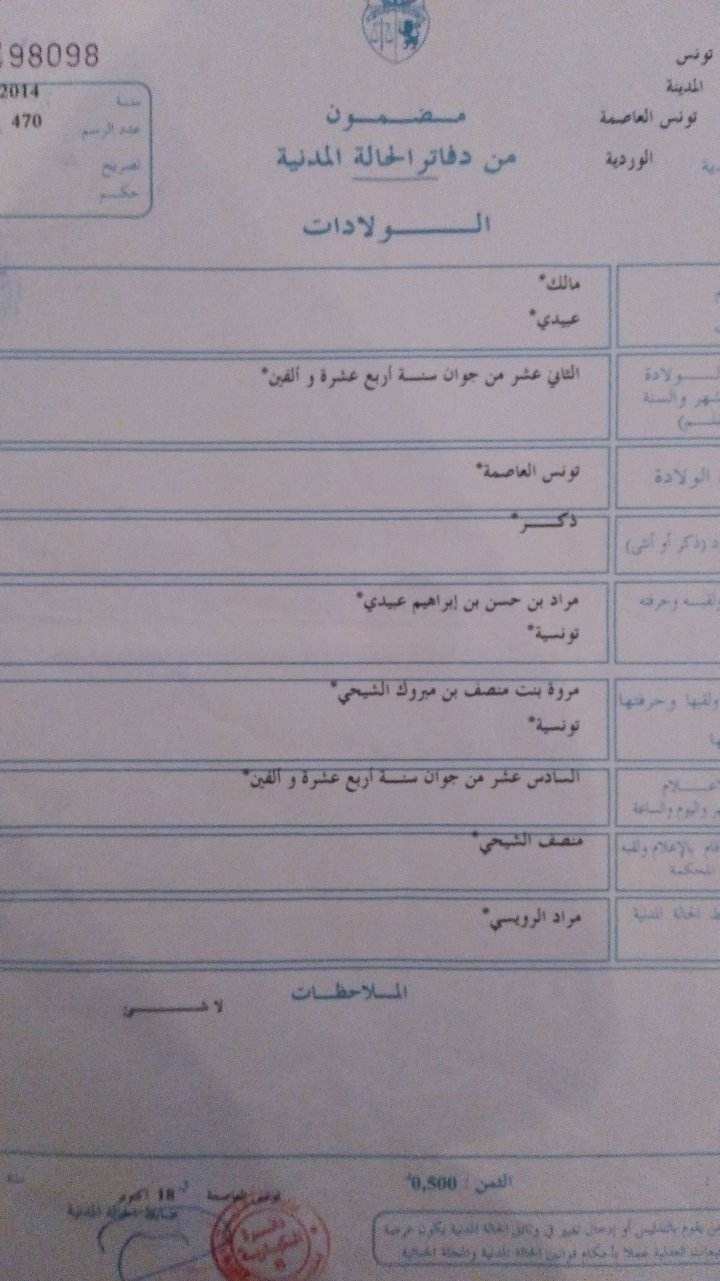 تونس
98098
المدينة
2014
سنة
تونس العاصمة
مضمون
470
عدد الرسم
الوردية
من دفاتر الحالة المدنية
تصريح
حكم
الولادات
مالك*
عبيدي*
الولادة
الثاني عشر من جوان سنة أربع عشرة و ألفين*
والسنة
الولادة
تونس العاصمة*
(ذكر أو أنثى)
ذكر*
وحرفته
مراد بن حسن بن إبراهيم عبيدي*
تونسية*
ولقبها وحرفتها
مروة بنت منصف بن مبروك الشيحي*
تونسية*
السادس عشر من جوان سنة أربع عشرة و ألفين*
واليوم والساعة
قام بالإعلام ولقبه
منصف الشيحي*
المحكمة
الحالة المدنية
مراد الرويسي*
الملاحظات
لا شئ
الثمن : 0,500د
تونس العاصمة
18 أكتوبر
سنة
ضابط الحالة المدنية
يقوم بالتدليس أو إدخال تغيير في وثائق الحالة المدنية يكون عرضة
العدلية عملا بأحكام قوانين الحالة المدنية والمجلة الجنائية